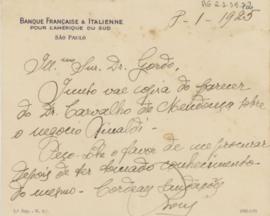 AG 2.2.38.72
BANQUE FRANÇAISE & ITALIENNE
POUR L'AMÉRIQUE DU SUD
SÃO PAULO
8-1-1925
Ill.mo Snr. Dr. Gordo.
Junto vae copia do parecer
do Dr. Carvalho de Mendonça sobre
o negocio Rinaldi.
Peço-lhe o favor de me procurar
depois de ter tomado conhecimento
do mesmo. Cordeaes saudações